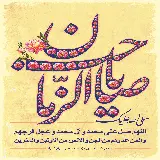 یا صاحب الزمان
اللهم صل علی محمد وآل محمد وعجل فرجهم
والعن اعدائهم من الجن والانس من الاولین والآخرین